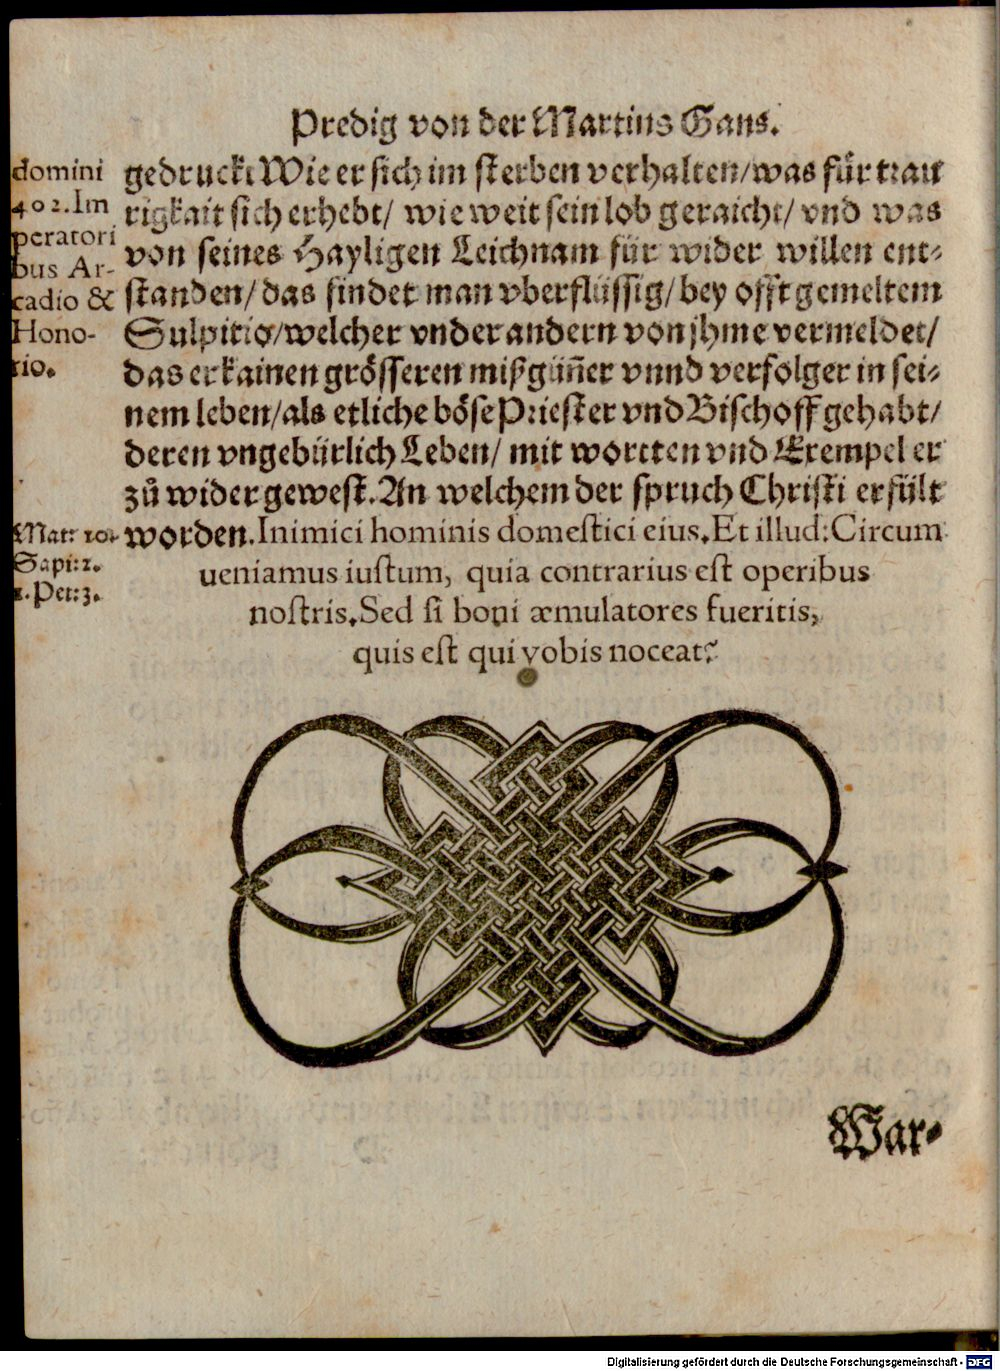 Predig von der Martins Gans.
domini
402. Im
peratori
bus Ar-
cadio &
Hono-
rio.
gedruckt Wie er sich im sterben verhalten/was für traw
rigkait sich erhebt/ wie weit sein lob geraicht/ vnd was
von seines Hayligen Leichnam für wider willen ent-
standen/das findet man vberflüssig/bey offt gemeltem
Sulpitio/welcher vnder andern von jhme vermeldet/
das er kainen grösseren mißgüñer vnnd verfolger in sei-
nem leben/als etliche böse Priester vnd Bischoff gehabt/
deren vngebürlich Leben/ mit wortten vnd Exempel er
zů wider gewest. An welchem der spruch Christi erfült
Mat: 10.
Sapi: 2.
1. Pet: 3.
worden. Inimici hominis domestici eius. Et illud: Circum
ueniamus iustum, quia contrarius est operibus
nostris. Sed si boni æmulatores fueritis,
quis est qui vobis noceat?
War-
Digitalisierung gefördert durch die Deutsche Forschungsgemeinschaft - DFG